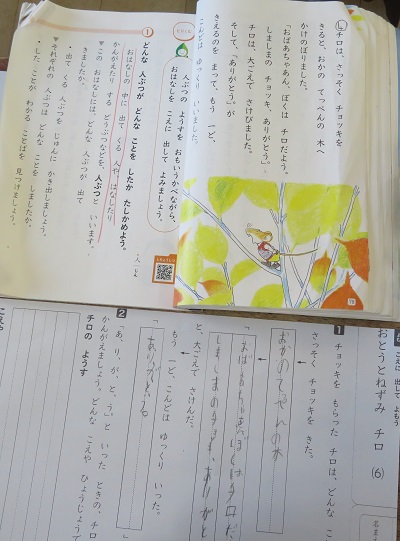 チロは、さっそく チョッキを
きると、おかの てっぺんの 木へ
かけのぼりました。
「おばあちゃあん、ぼくは チロだよう。
しましまの チョッキ、ありがとう。」
チロは、大ごえで さけびました。
そして、「ありがとう。」が
きえるのを まって、もう 一ど、
こんどは ゆっくり いいました。
78
人ぶつの ようすを おもいうかべながら、
おはなしを こえに 出して よみましょう。
1 どんな 人ぶつが どんな ことを したか たしかめよう。
おはなしの 中に 出て くる 人や、はなしたり
かんがえたり する どうぶつなどを、人ぶつと いいます。
▼この おはなしには、どんな 人ぶつが 出て
きましたか。
・出て くる 人ぶつを じゅんに かき出しましょう。
▼それぞれの 人ぶつは、どんな ことを しましたか。
・した ことが わかる ことばを 見つけましょう。
こえに 出して よもう
おとうとねずみ チロ (6)
1 チョッキを もらった チロは、どんな こ
さっそく チョッキを きた。
おかのてっぺんの木
「おばあちゃあん、ぼくはチロだ
しましまのチョッキ、ありがと
と、大ごえで さけんだ。
もう 一ど、こんどは ゆっくり いった。
「ありがとう。
2 「あ、り、が、と、う」と いった ときの、チロ
かんがえましょう。どんな こえや ひょうじょうで
チロの ようす